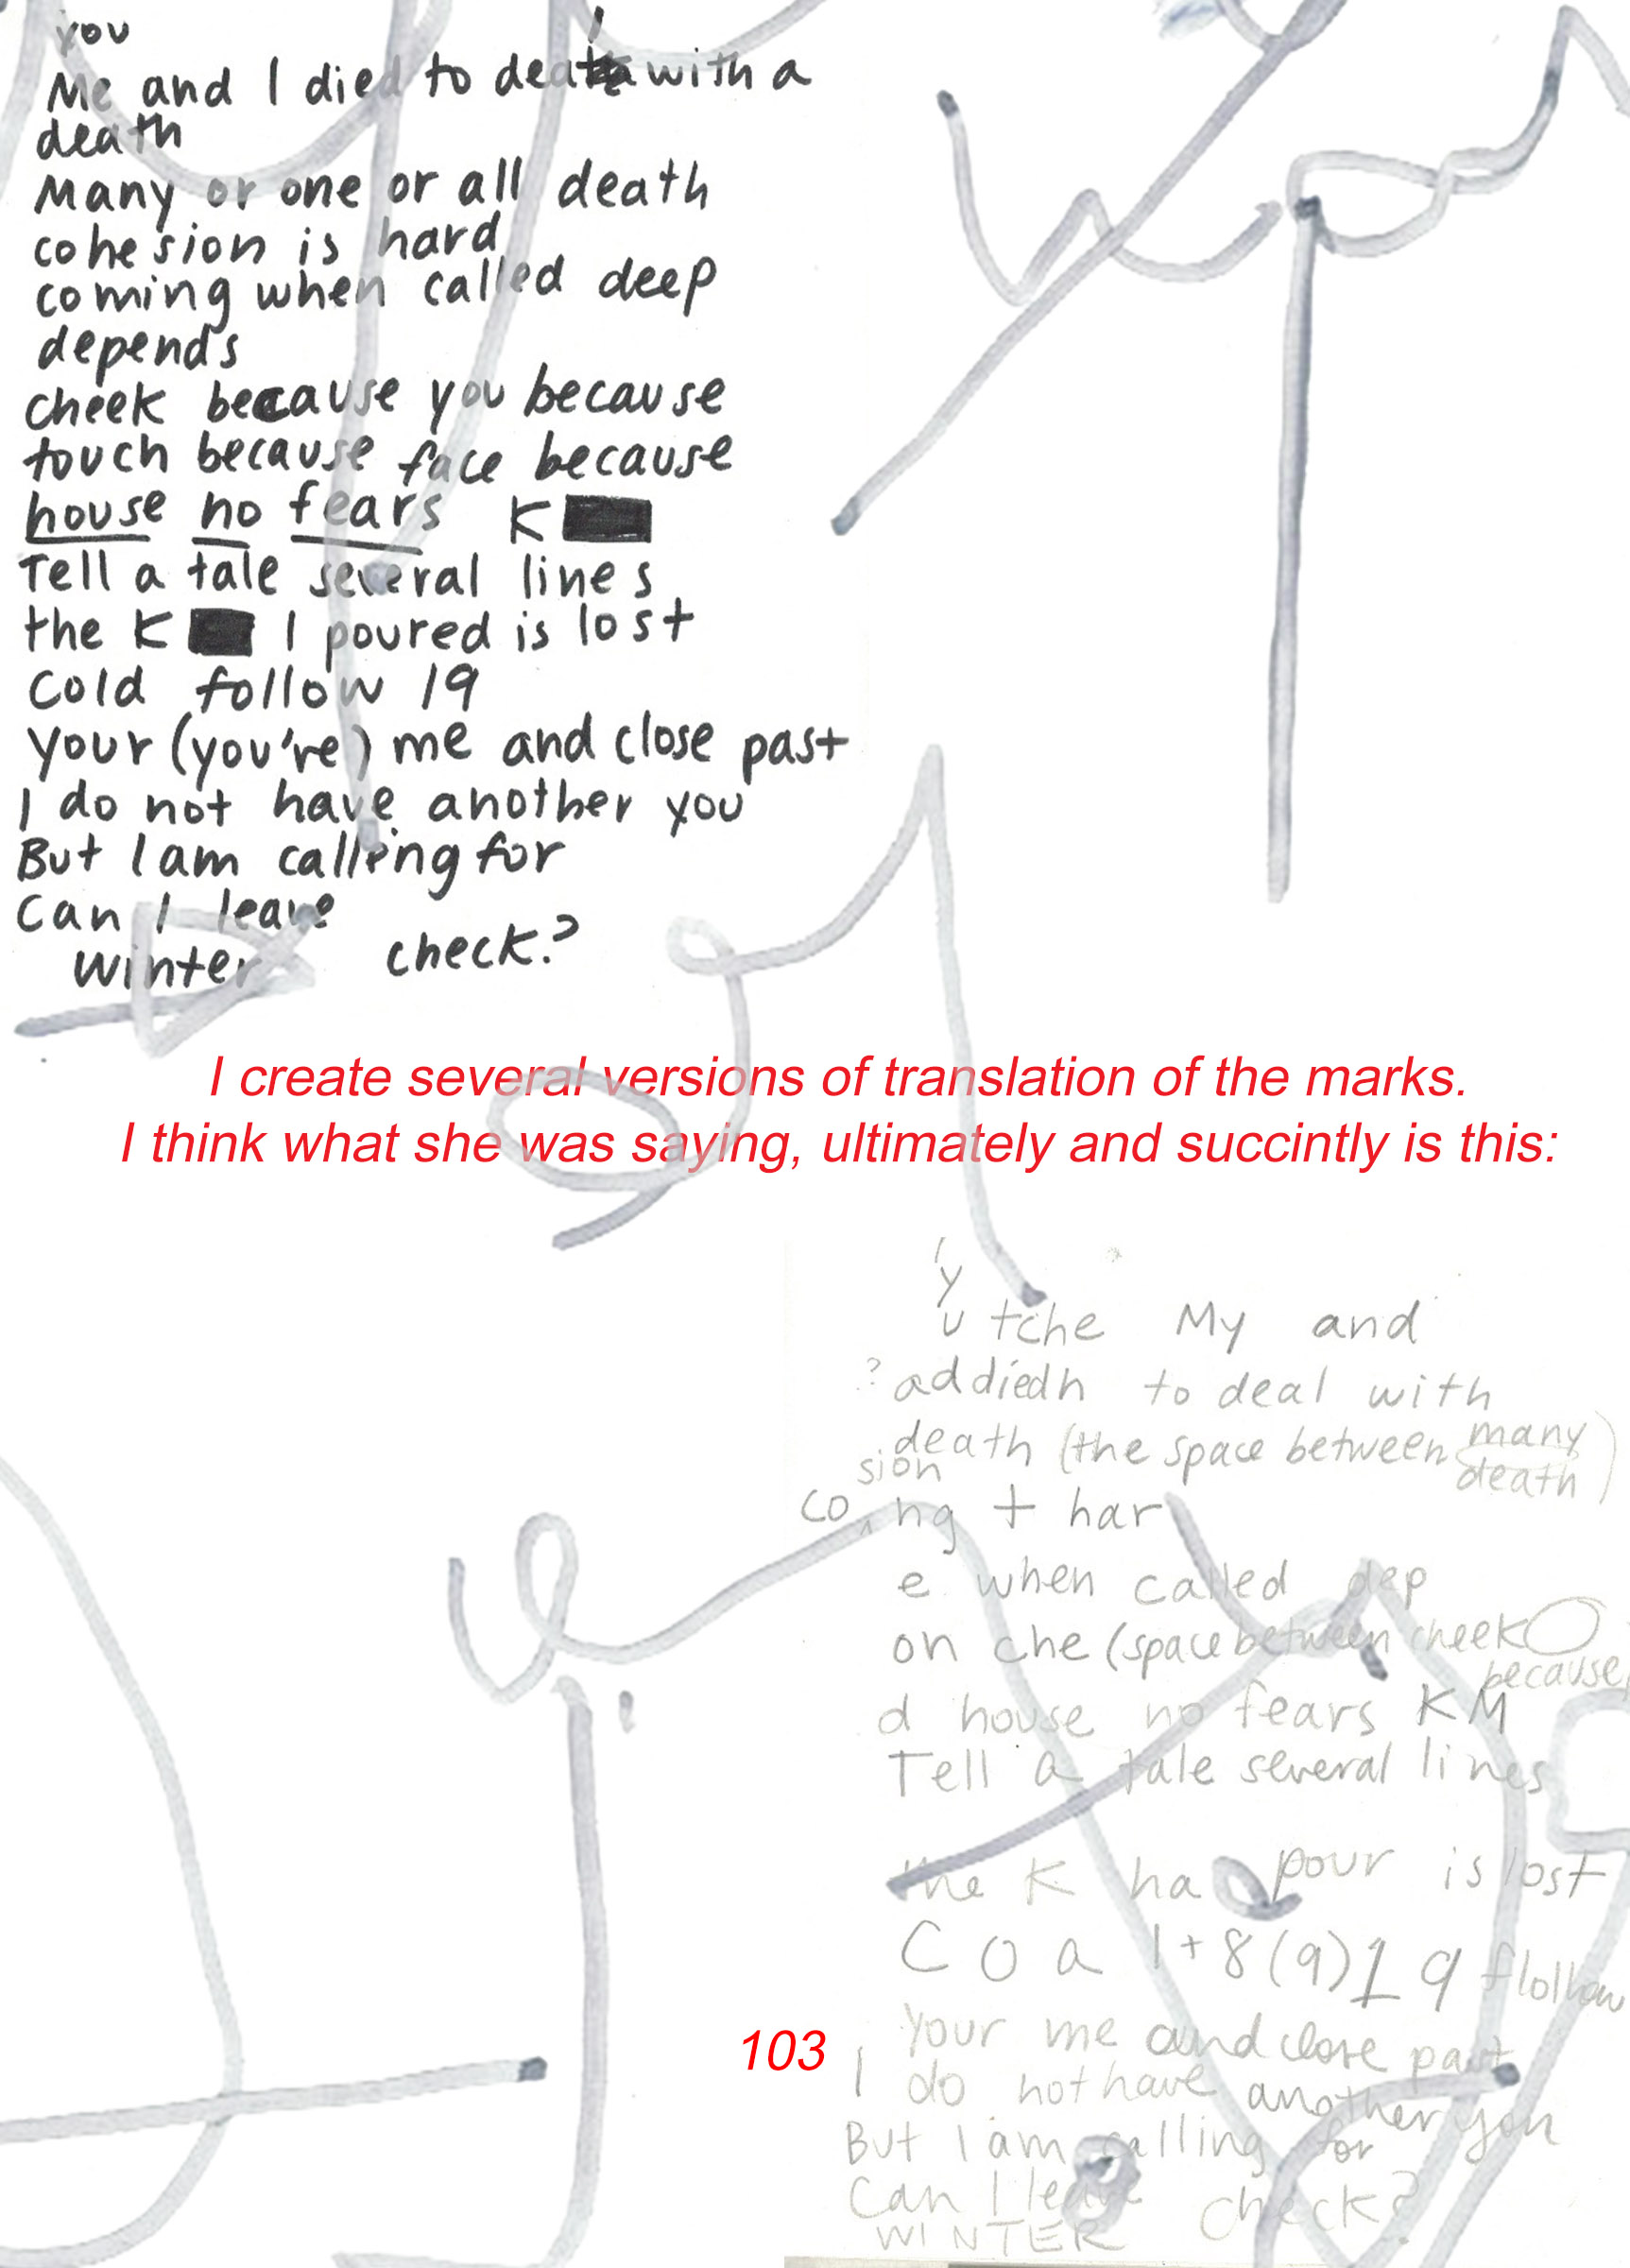 you
Me and I died to death with a
death
Many or one or all death
cohesion is hard
coming when called deep
depends
cheek because you because
touch because face because
house no fears K
Tell a tale several lines
the K I poured is lost
Cold follow 19
Your (you're) me and close past
I do not have another you
But I am calling for
Can I leave
Winter check?
I create several versions of translation of the marks.
I think what she was saying, ultimately and succintly is this:
y
u tche My and
? addiedh to deal with
death (the space between many
death)
sion
co ng + har
e when called dep
on che (space between cheek
because
d house no fears KM
Tell a tale several lines
the K ha pour is lost
C o a 1+8(9)19 flollow
Your me and close past
103
I do not have another you
But I am calling for
Can I leave check?
WINTER